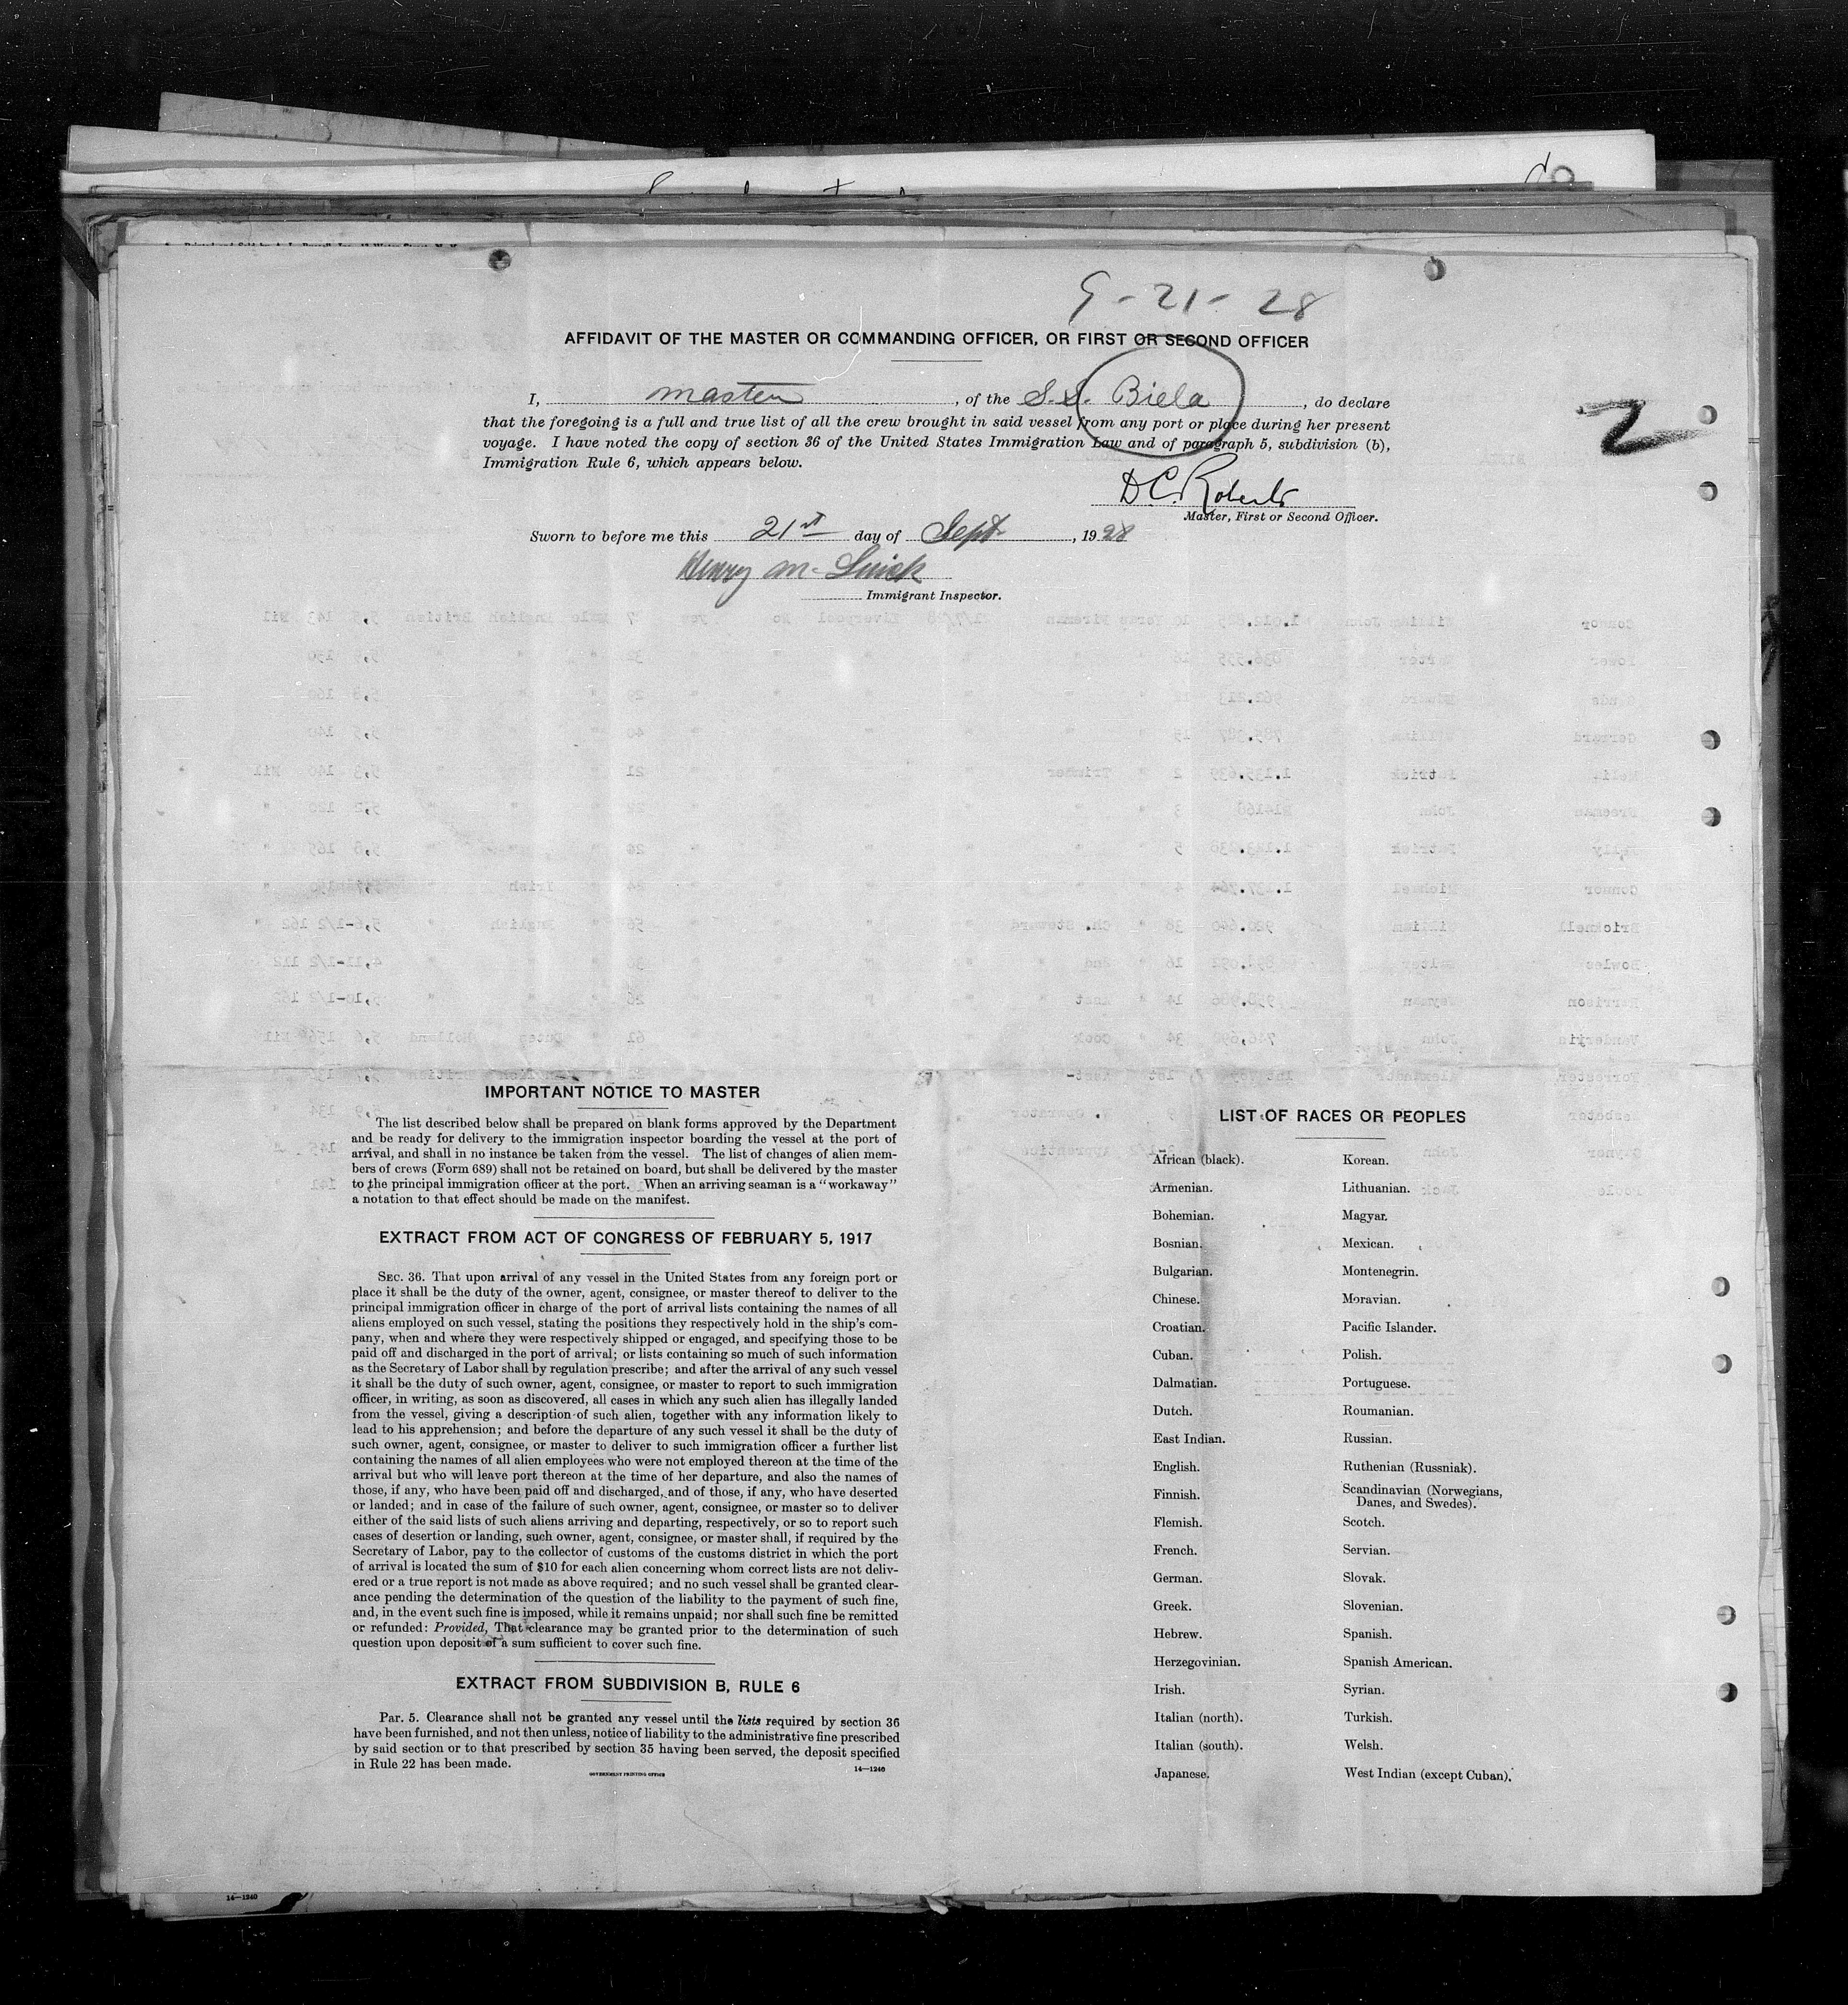 9-21-28
AFFIDAVIT OF THE MASTER OR COMMANDING OFFICER, OR FIRST OR SECOND OFFICER
I, master, of the S.S. Biela, do declare
that the foregoing is a full and true list of all the crew brought in said vessel from any port or place during her present
voyage. I have noted the copy of section 36 of the United States Immigration Law and of paragraph 5, subdivision (b),
Immigration Rule 6, which appears below.
2
D.C. Roberts
Master, First or Second Officer.
Sworn to before me this 21st day of Sept, 1928
Henry M.
Immigrant Inspector.
IMPORTANT NOTICE TO MASTER
The list described below shall be prepared on blank forms approved by the Department
and be ready for delivery to the immigration inspector boarding the vessel at the port of
arrival, and shall in no instance be taken from the vessel. The list of changes of alien mem-
bers of crews (Form 689) shall not be retained on board, but shall be delivered by the master
to the principal immigration officer at the port. When an arriving seaman is a "workaway"
a notation to that effect should be made on the manifest.
EXTRACT FROM ACT OF CONGRESS OF FEBRUARY 5, 1917
SEC. 36. That upon arrival of any vessel in the United States from any foreign port or
place it shall be the duty of the owner, agent, consignee, or master thereof to deliver to the
principal immigration officer in charge of the port of arrival lists containing the names of all
aliens employed on such vessel, stating the positions they respectively hold in the ship's com-
pany, when and where they were respectively shipped or engaged, and specifying those to be
paid off and discharged in the port of arrival; or lists containing so much of such information
as the Secretary of Labor shall by regulation prescribe; and after the arrival of any such vessel
it shall be the duty of such owner, agent, consignee, or master to report to such immigration
officer, in writing, as soon as discovered, all cases in which any such alien has illegally landed
from the vessel, giving a description of such alien, together with any information likely to
lead to his apprehension; and before the departure of any such vessel it shall be the duty of
such owner, agent, consignee, or master to deliver to such immigration officer a further list
containing the names of all alien employees who were not employed thereon at the time of the
arrival but who will leave port thereon at the time of her departure, and also the names of
those, if any, who have been paid off and discharged, and of those, if any, who have deserted
or landed; and in case of the failure of such owner, agent, consignee, or master so to deliver
either of the said lists of such aliens arriving and departing, respectively, or so to report such
cases of desertion or landing, such owner, agent, consignee, or master shall, if required by the
Secretary of Labor, pay to the collector of customs of the customs district in which the port
of arrival is located the sum of $10 for each alien concerning whom correct lists are not deliv-
ered or a true report is not made as above required; and no such vessel shall be granted clear-
ance pending the determination of the question of the liability to the payment of such fine,
and, in the event such fine is imposed, while it remains unpaid; nor shall such fine be remitted
or refunded: Provided, That clearance may be granted prior to the determination of such
question upon deposit of a sum sufficient to cover such fine.
EXTRACT FROM SUBDIVISION B, RULE 6
Par. 5. Clearance shall not be granted any vessel until the lists required by section 36
have been furnished, and not then unless, notice of liability to the administrative fine prescribed
by said section or to that prescribed by section 35 having been served, the deposit specified
in Rule 22 has been made.
GOVERNMENT PRINTING OFFICE
14—1240
LIST OF RACES OR PEOPLES
African (black).
Armenian.
Bohemian.
Bosnian.
Bulgarian.
Chinese.
Croatian.
Cuban.
Dalmatian.
Dutch.
East Indian.
English.
Finnish.
Flemish.
French.
German.
Greek.
Hebrew.
Herzegovinian.
Irish.
Italian (north).
Italian (south).
Japanese.
Korean.
Lithuanian.
Magyar.
Mexican.
Montenegrin.
Moravian.
Pacific Islander.
Polish.
Portuguese.
Roumanian.
Russian.
Ruthenian (Russniak).
Scandinavian (Norwegians,
Danes, and Swedes).
Scotch.
Servian.
Slovak.
Slovenian.
Spanish.
Spanish American.
Syrian.
Turkish.
Welsh.
West Indian (except Cuban).
14—1240